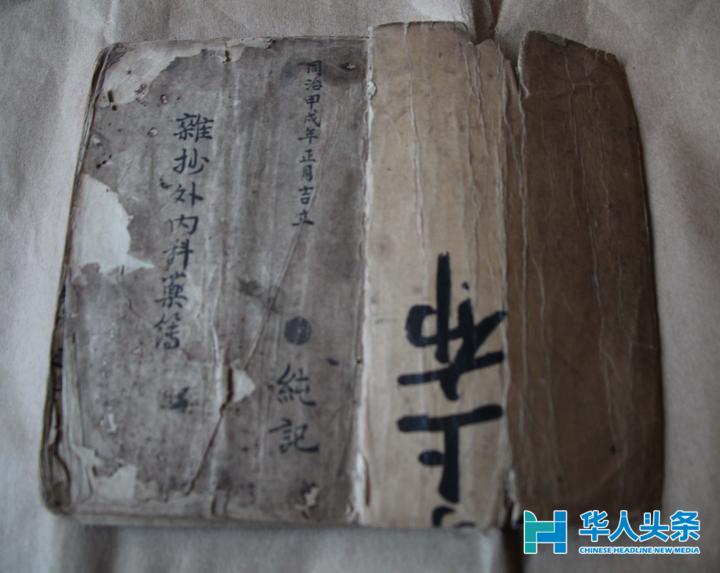 布上
同治甲戌年正月吉立
純記
雜抄外内科藥簿
华人头条
CHINESE HEADLINE NEW MEDIA